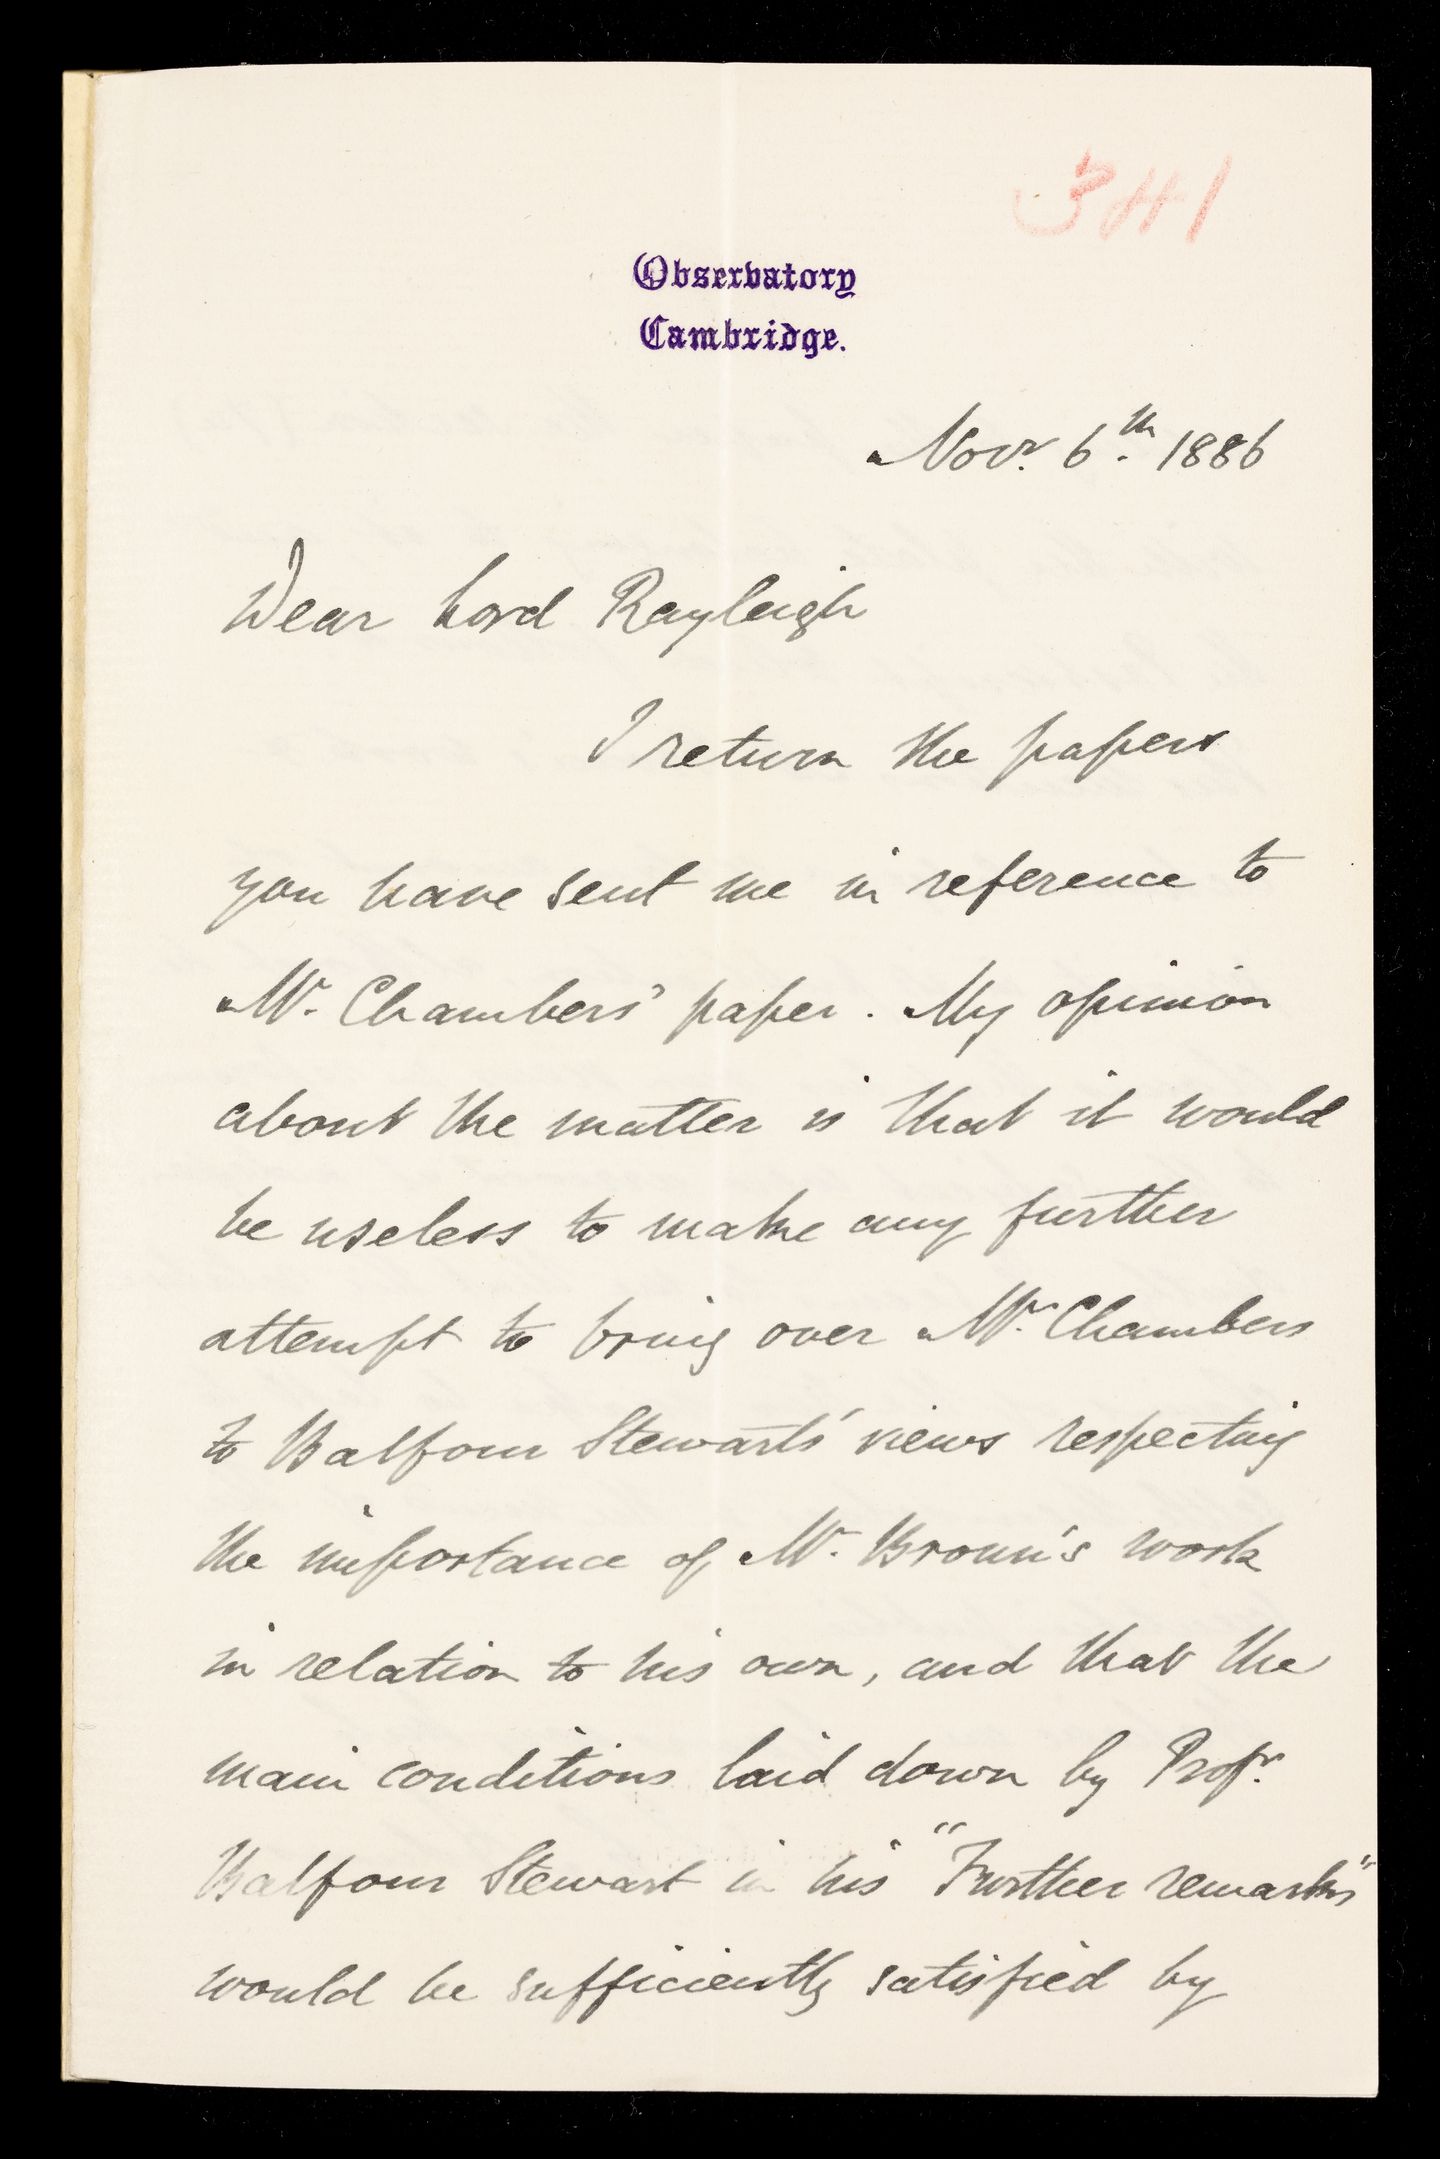 341
Observatory
Cambridge.
Novr. 6th. 1886
Dear Lord Rayleigh
I return the papers
you have sent me in reference to
Mr. Chambers' paper. My opinion
about the matter is that it would
be useless to make any further
attempt to bring over Mr. Chambers
to Balfour Stewarts' views respecting
the importance of Mr. Broun's work
in relation to his own, and that the
main conditions laid down by Profr.
Balfour Stewart in his "Further remarks"
would be sufficiently satisfied by